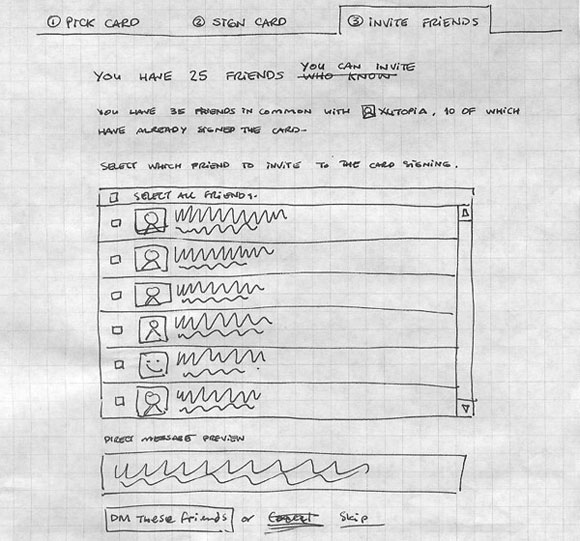 ① PICK CARD ② SIGN CARD ③ INVITE FRIENDS
YOU HAVE 25 FRIENDS WHO KNOW YOU CAN INVITE
YOU HAVE 35 FRIENDS IN COMMON WITH XUTOPIA, 10 OF WHICH
HAVE ALREADY SIGNED THE CARD.
SELECT WHICH FRIEND TO INVITE TO THE CARD SIGNING.
SELECT ALL FRIENDS.
DIRECT MESSAGE PREVIEW
DM These friends or Cancel Skip